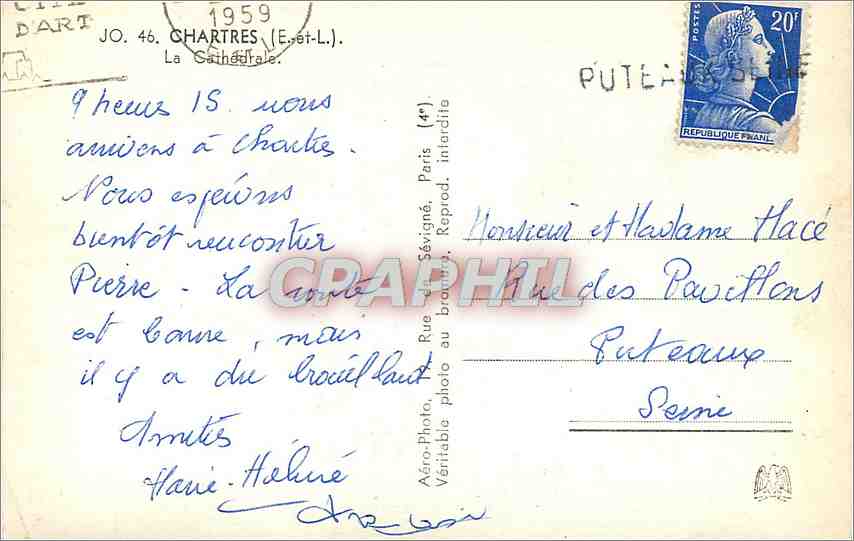 D'ART
1959
JO. 46. CHARTRES (E.-et-L.).
La Cathédrale.
POSTES
20F
REPUBLIQUE FRANÇ.
PUTEAUX SEINE
9 heures 15. nous
arrivons à Chartres.
Nous espérons
bientôt rencontrer
Pierre - La route
est bonne, mais
il y a du brouillard
Amitiés
Marie-Hélène
Aéro-Photo, Rue de Sévigné, Paris (4e).
Véritable photo au bromure. Reprod. interdite
CPAPHIL
Monsieur et Madame Macé
Rue des Pavillons
Puteaux
Seine